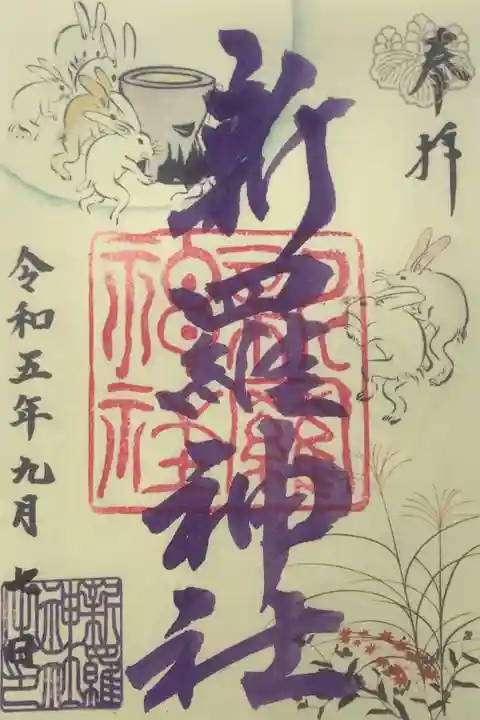 奉拝
新羅神社
令和五年九月七日
新羅神社
新羅神社之印